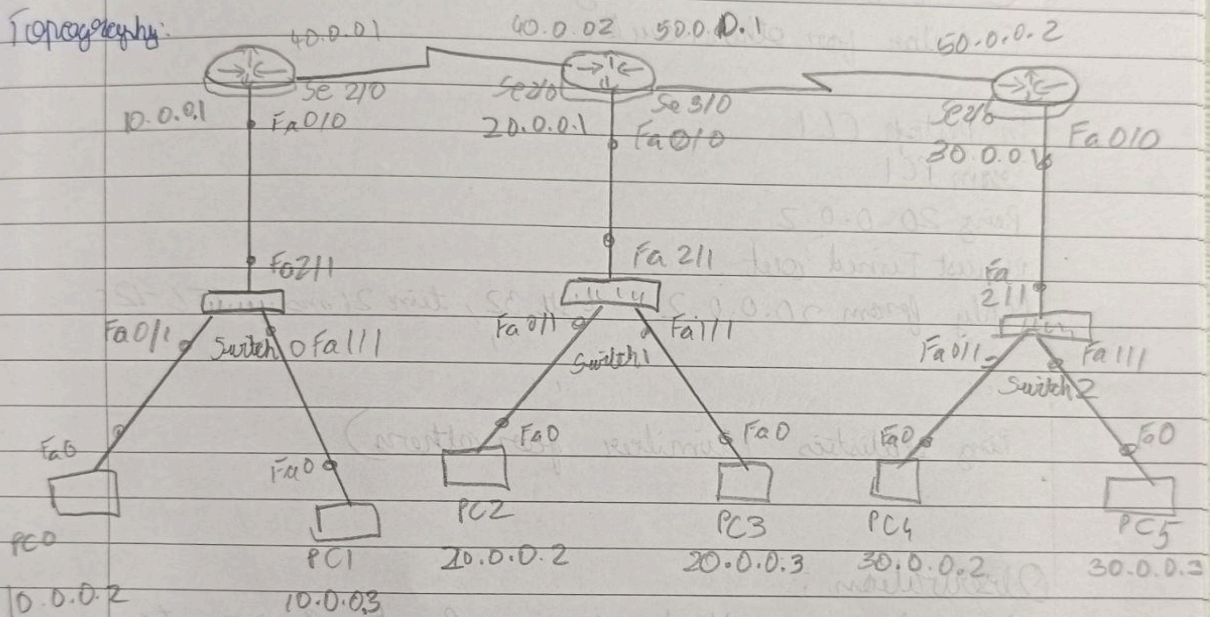 Topography:
40.0.01
40.0.02
50.0.0.1
50.0.0.2
Se 2/0
Se2/0
Se 3/0
Se2/0
10.0.0.1
Fa0/0
20.0.0.1
Fa0/0
30.0.0.1
Fa0/0
Fa2/1
Fa 2/1
Fa
2/1
Fa0/1
Switch 0
Fa1/1
Fa0/1
Switch1
Fa1/1
Fa0/1
Switch2
Fa1/1
Fa0
Fa0
Fa0
Fa0
Fa0
Fa0
PC0
PC1
PC2
PC3
PC4
PC5
10.0.0.2
10.0.03
20.0.0.2
20.0.0.3
30.0.0.2
30.0.0.3